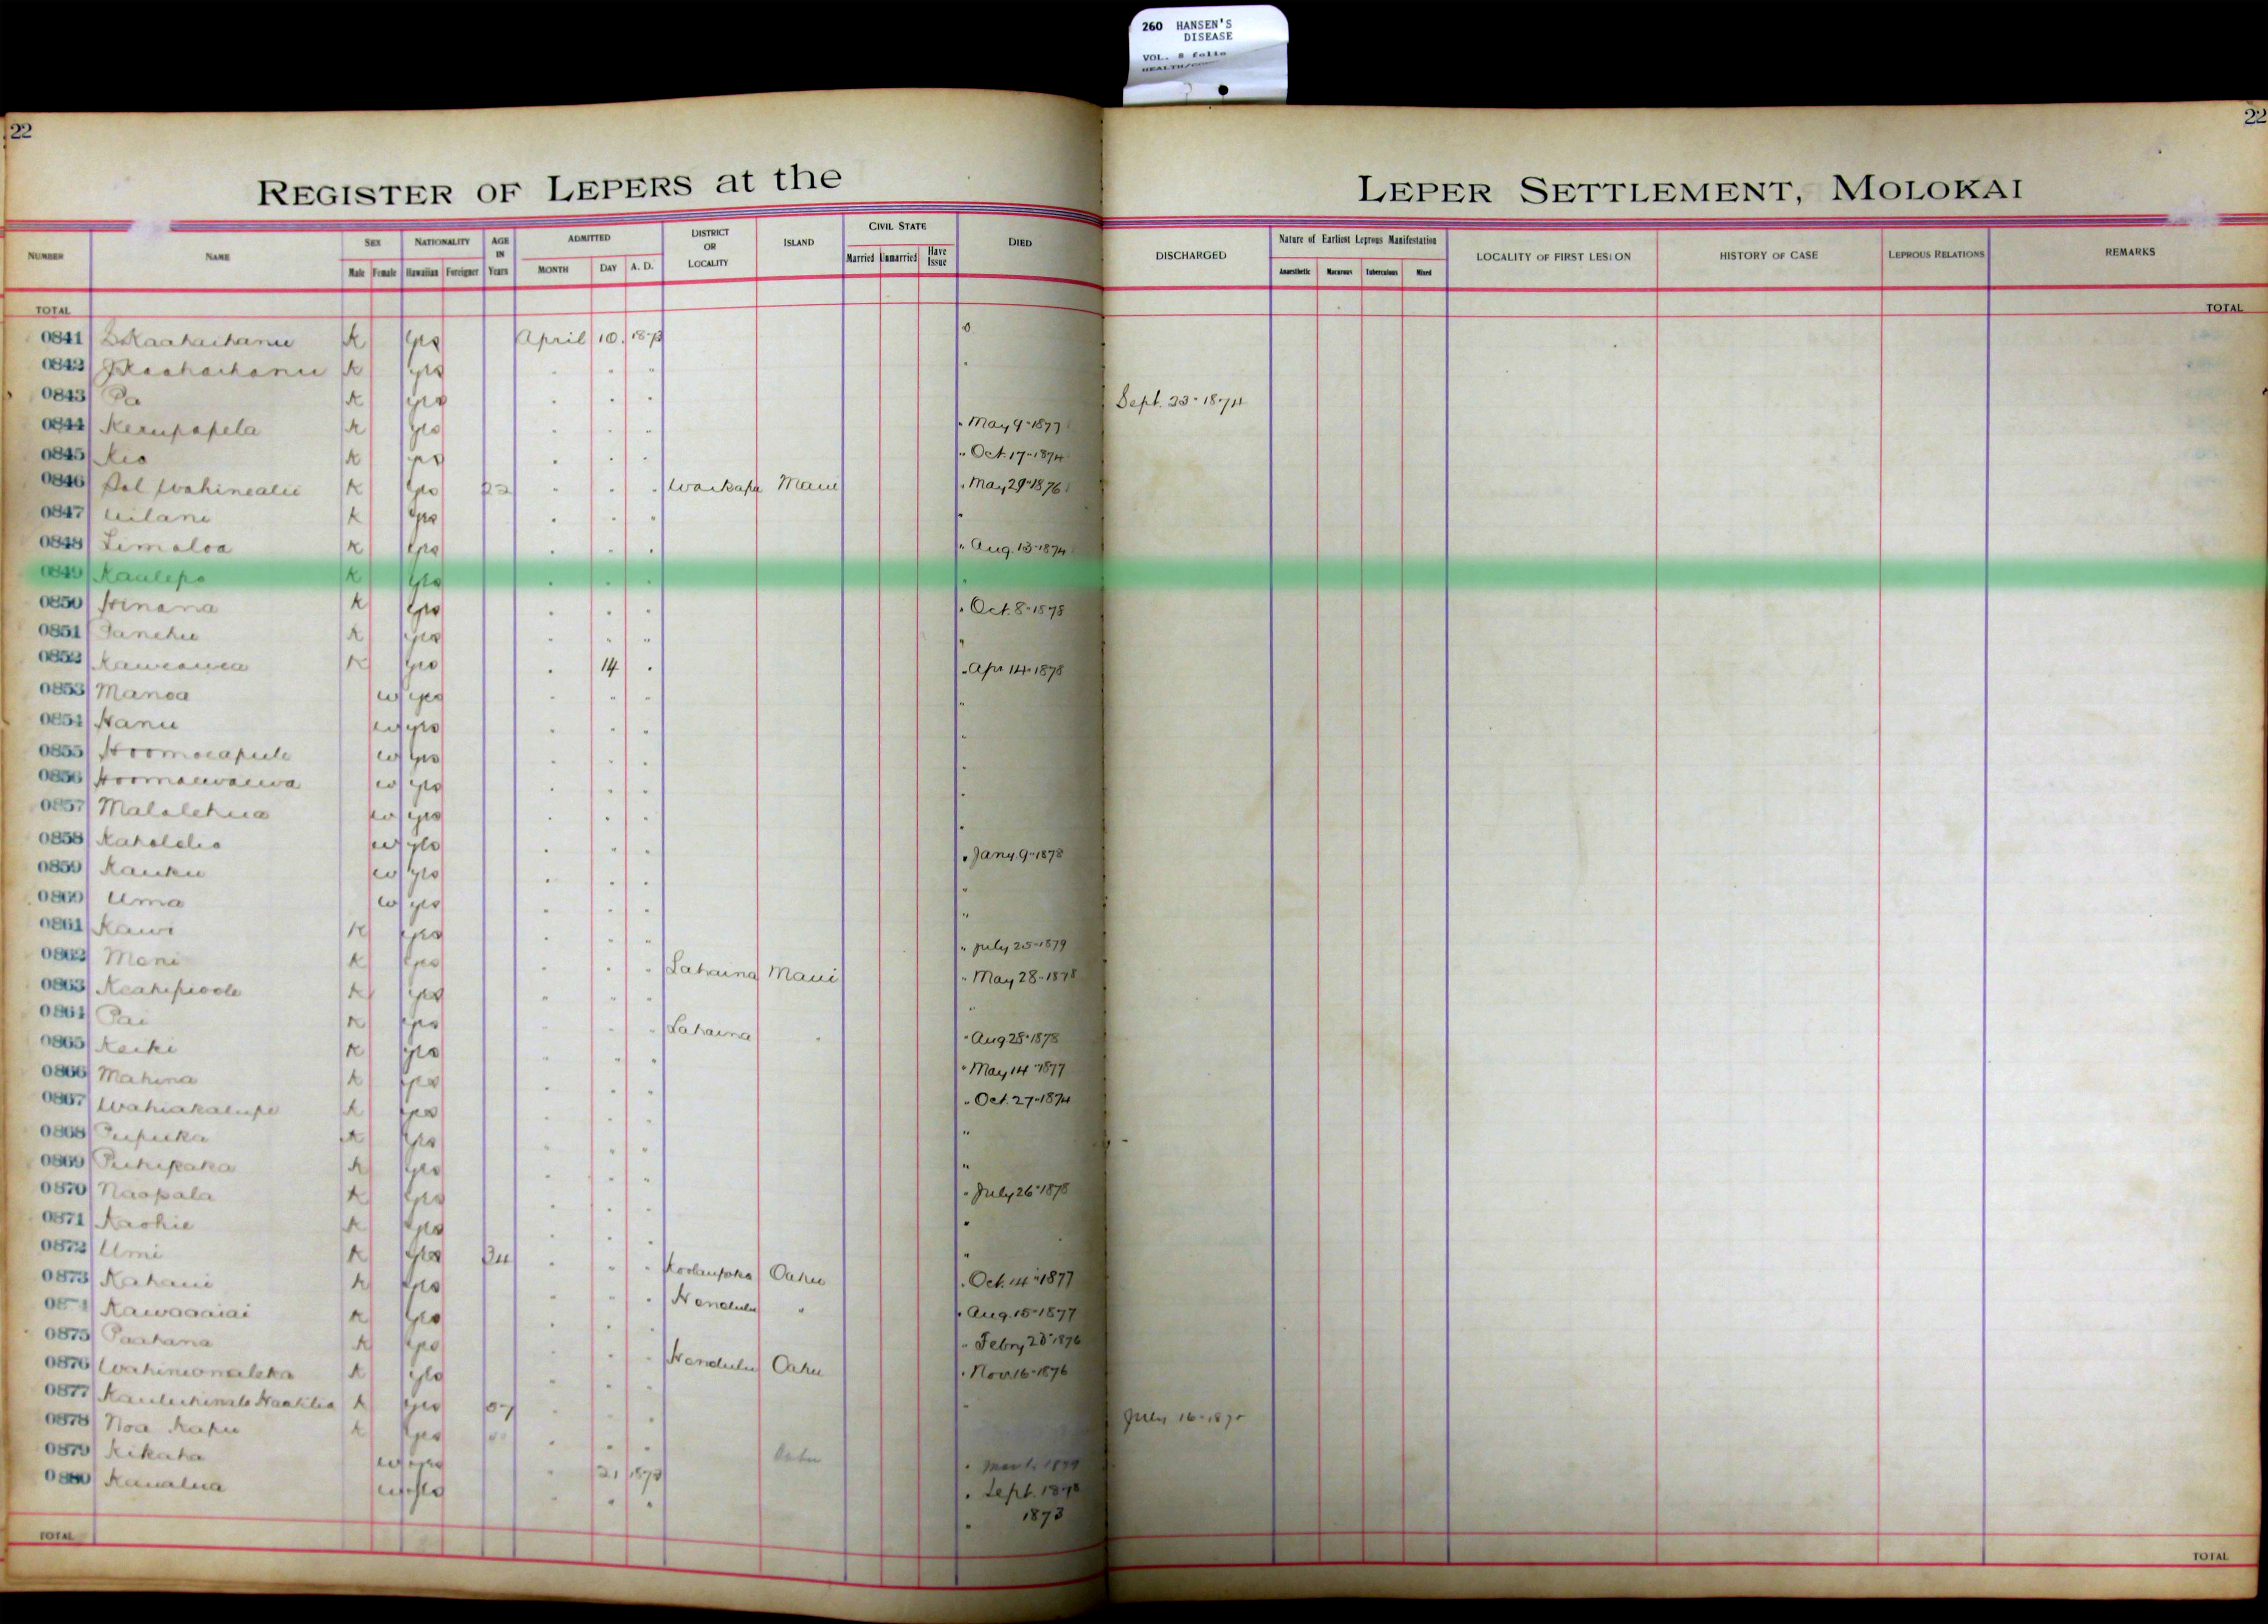 260 HANSEN'S
DISEASE
VOL. 8 folio
22
22
REGISTER OF LEPERS at the LEPER SETTLEMENT, MOLOKAI
NUMBER NAME SEX NATIONALITY AGE IN Years ADMITTED DISTRICT OR LOCALITY ISLAND CIVIL STATE DIED DISCHARGED Nature of Earliest Leprous Manifestation LOCALITY OF FIRST LESION HISTORY OF CASE LEPROUS RELATIONS REMARKS
Male Female Hawaiian Foreigner MONTH DAY A. D. Married Unmarried Have Issue Anaesthetic Macurous Tuberculous Mixed
TOTAL TOTAL
0841 K yes April 10. 1873
0842 K yes
0843 Pa K yes Sept. 23-1874
0844 K yes May 9-1877
0845 Kio K yes Oct. 17-1874
0846 Wahinealii K yes 22 Waikapu Maui May 29-1876
0847 Uilani K yes
0848 Limaloa K yes Aug. 13-1874
0849 Kaulepo K yes
0850 Hinana K yes Oct. 8-1878
0851 K yes
0852 Kaweawea K yes 14 Apr 14-1878
0853 Manoa w yes
0854 Hanu w yes
0855 Hoomoeapule w yes
0856 Hoomauwauwa w yes
0857 Malolehua w yes
0858 w yes Jany. 9-1878
0859 Kauku w yes
0860 Uma w yes
0861 Kawi K yes July 25-1879
0862 Meni K yes Lahaina Maui May 28-1878
0863 Keahipioole K yes
0864 Pai K yes Lahaina " Aug 28-1878
0865 Keiki K yes May 14-1877
0866 Mahina K yes Oct. 27-1874
0867 Wahiakalupe K yes
0868 Pupuka K yes
0869 Puhipaka K yes July 26-1878
0870 Naopala K yes
0871 Kaohie K yes
0872 Umi K yes 34 Koolaupoko Oahu Oct. 14-1877
0873 Kahaui K yes Honolulu " Aug. 15-1877
0874 Kawaaaiai K yes Febry 28-1876
0875 Paahana K yes Honolulu Oahu Nov. 16-1876
0876 K yes
0877 K yes 57 July 16-187
0878 Noa Kapu K yes Oahu
0879 Kikaha w yes 21 1873 Sept. 1878
0880 Kanalua w yes 1873
TOTAL TOTAL